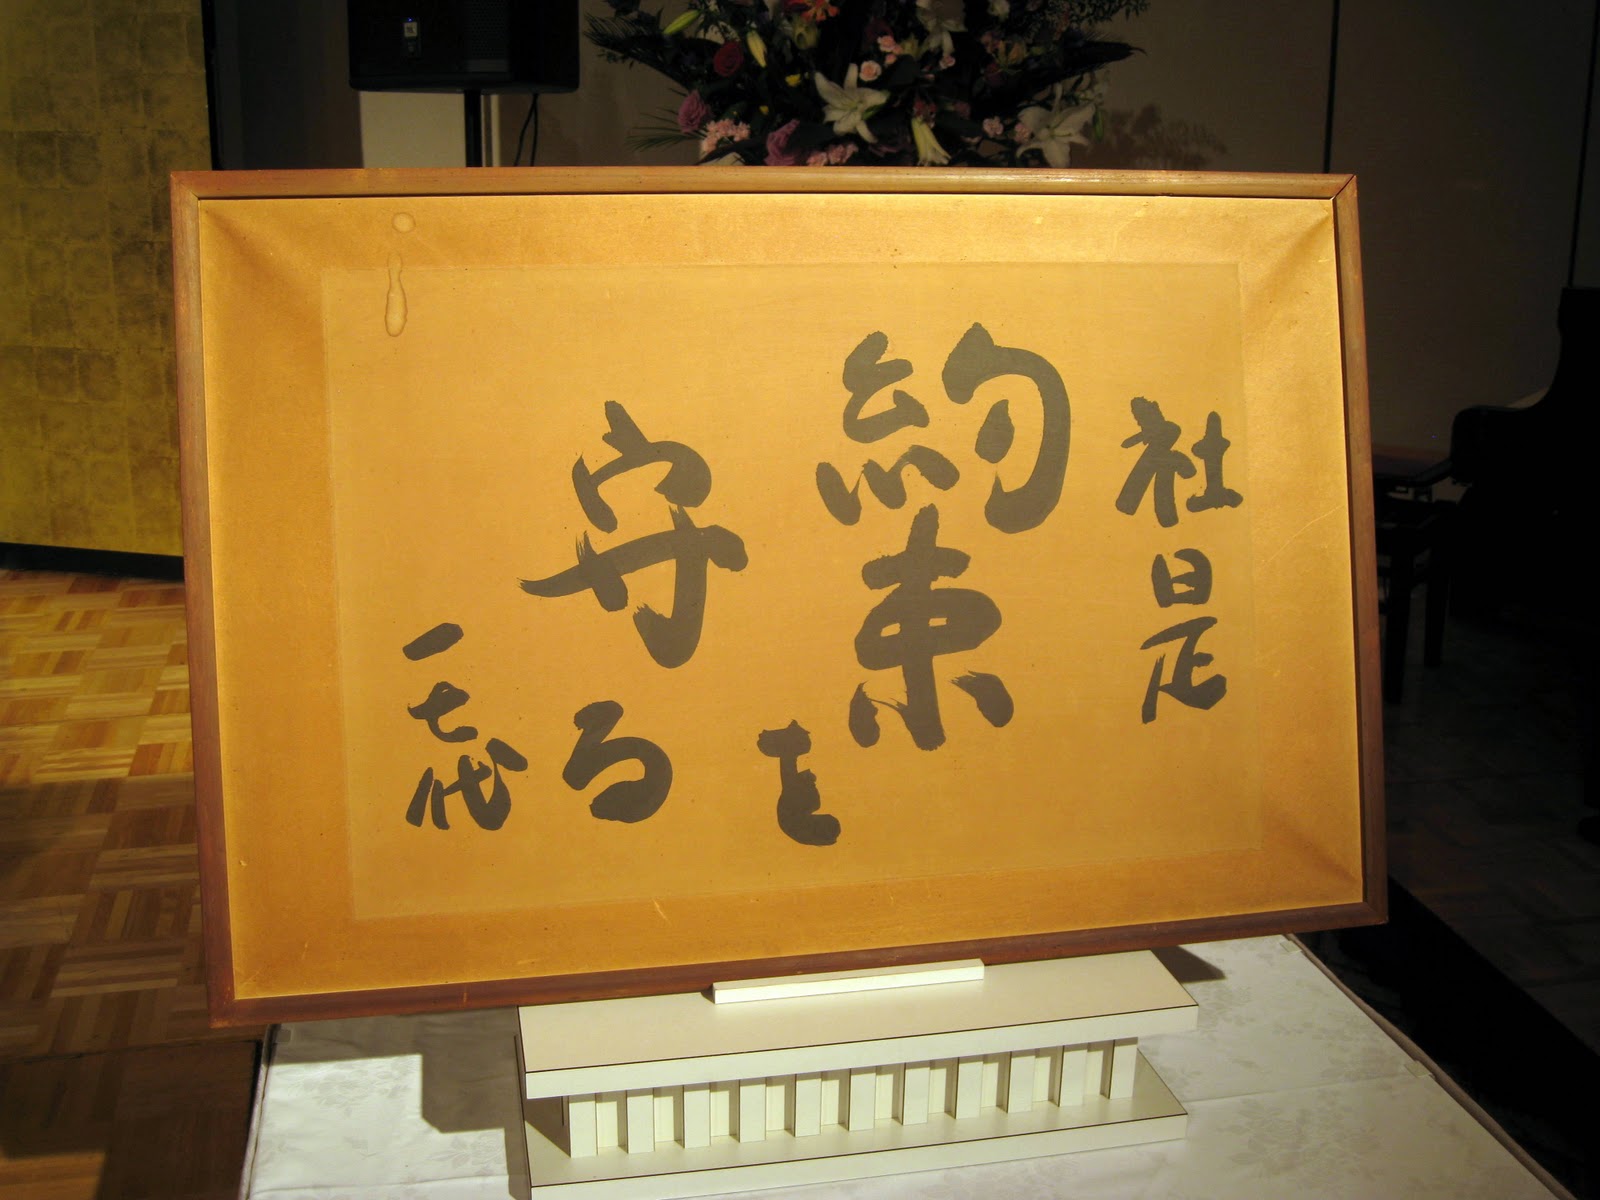 社是
約束を
守る
一七代